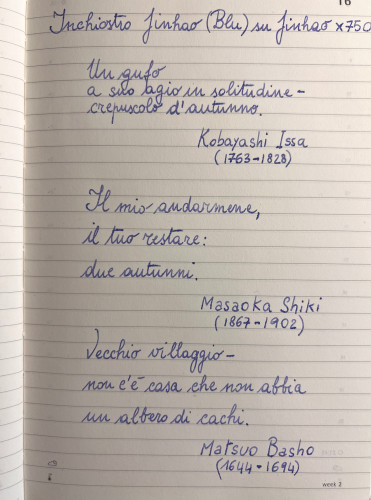 16
Inchiostro Jinhao (Blu) su Jinhao x750
Un gufo
a suo agio in solitudine -
crepuscolo d'autunno.
Kobayashi Issa
(1763-1828)
Il mio andarmene,
il tuo restare:
due autunni.
Masaoka Shiki
(1867-1902)
Vecchio villaggio -
non c'è casa che non abbia
un albero di cachi.
Matsuo Basho
(1644-1694)
week 2